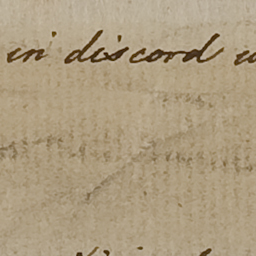 in discord